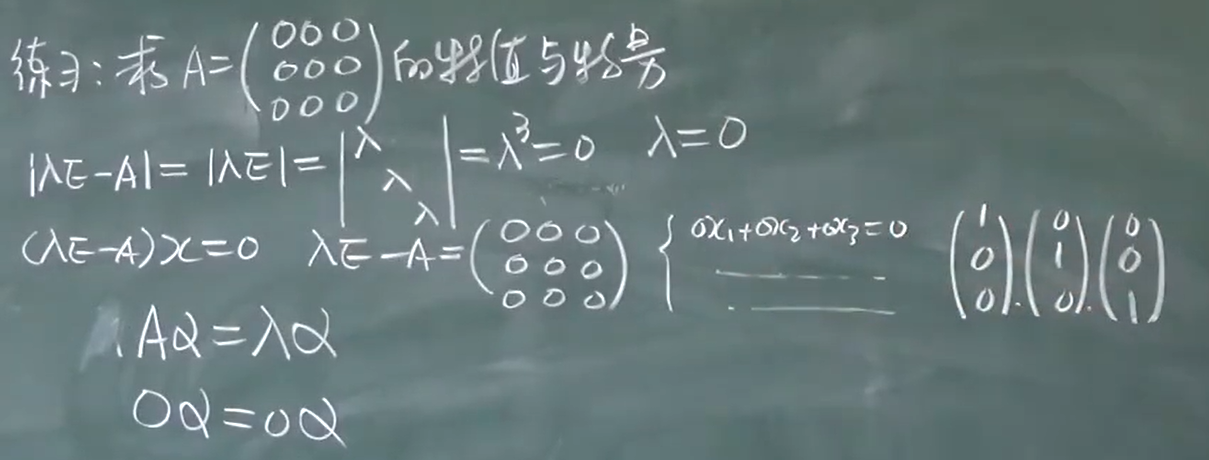 练习：求 A=(0 0 0; 0 0 0; 0 0 0) 的特值与特向
|λE-A|=|λE|=|λ λ λ|=λ³=0 λ=0
(λE-A)x=0 λE-A=(0 0 0; 0 0 0; 0 0 0) { 0x₁+0x₂+0x₃=0 (1; 0; 0).(0; 1; 0).(0; 0; 1)
Aα=λα
0α=0α